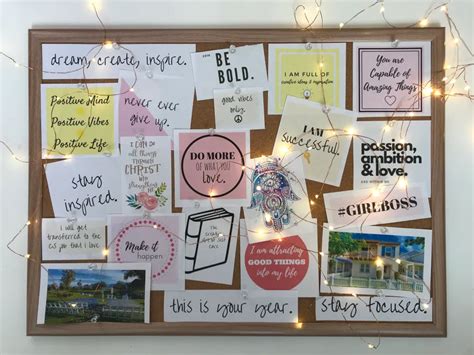 dream, create, inspire.
BE
BOLD.
I AM FULL OF
creative ideas & inspiration
You are
Capable of
Amazing Things
Positive Mind
Positive Vibes
Positive Life
never ever
give up.
good vibes
only.
I AM
successful
passion,
ambition
& love.
I CAN DO
all things
THROUGH
CHRIST
who
strengthens
me
DO MORE
OF WHAT YOU
Love.
stay
inspired.
#GIRLBOSS
I will get
transferred to the
job that I love
Make it
happen
I AM ATTRACTING
GOOD THINGS
INTO MY LIFE
this is your year.
stay focused.